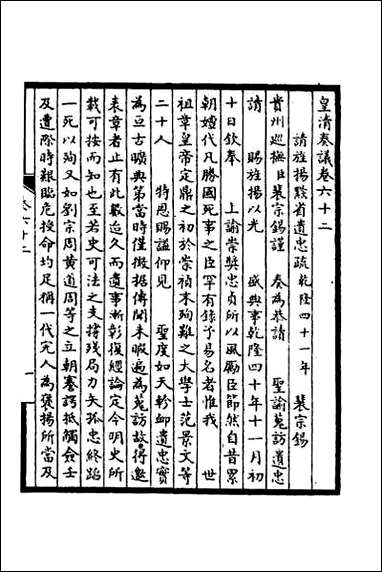 皇清奏議卷六十二
請旌揚黔省遺忠疏乾隆四十一年 裴宗錫
貴州巡撫臣裴宗錫謹 奏為恭請 聖諭蒐訪遺忠
請 賜旌揚以光 盛典事乾隆四十年十一月初
十日欽奉 上諭崇奬忠貞所以風厲臣節然自昔累
朝嬗代凡勝國死事之臣罕有錄予易名者惟我 世
祖章皇帝定鼎之初於崇禎末殉難之大學士范景文等
二十人 特恩賜謚仰見 聖度如天軫卹遺忠實
為亘古曠典第當時僅徵據傳聞未暇遍為蒐訪故得邀
表章者止有此數迨久而遺事漸彰復經論定今明史所
載可按而知也至若史可法之支撐殘局力矢孤忠終蹈
一死以殉又如劉宗周黃道周等之立朝謇諤抵觸僉壬
及遭際時艱臨危授命均足稱一代完人為褒揚所當及
卷六十二
一